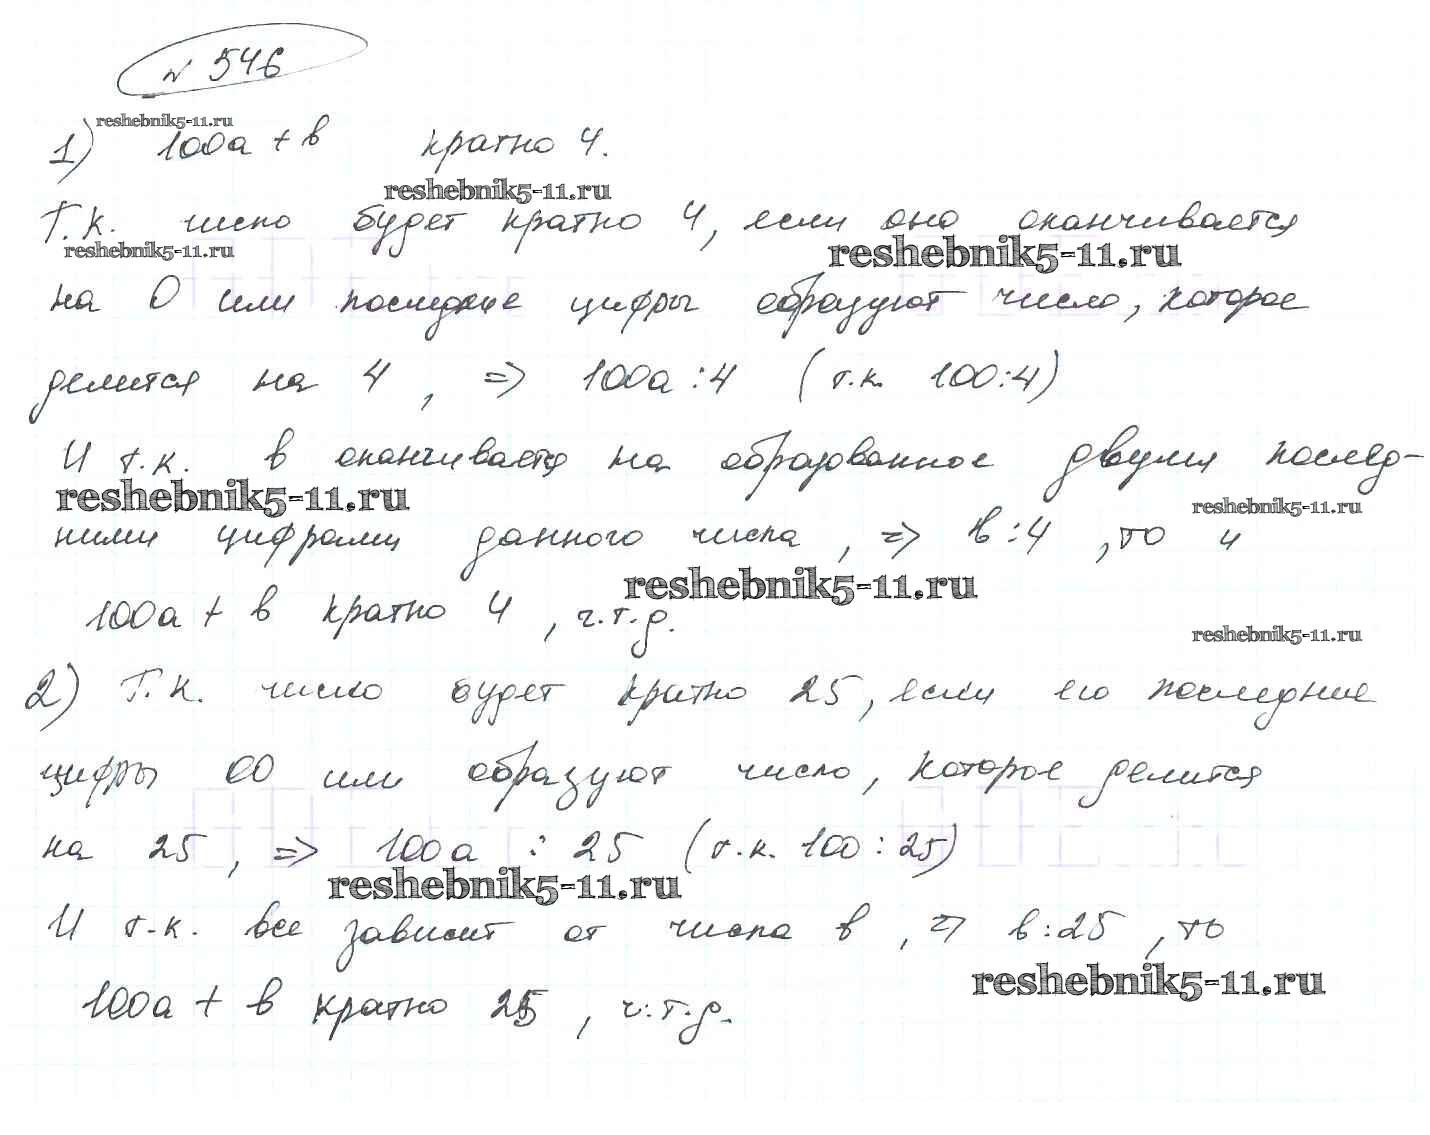 № 546
reshebnik5-11.ru
1) 100а + в кратно 4.
reshebnik5-11.ru
Т.к. число будет кратно 4, если оно оканчивается
reshebnik5-11.ru reshebnik5-11.ru
на 0 или последние цифры образуют число, которое
делится на 4, => 100а : 4 (т.к. 100:4)
И т.к. в оканчивается на образованное двумя послед-
reshebnik5-11.ru reshebnik5-11.ru
ними цифрами данного числа, => в:4, то и
reshebnik5-11.ru
100а + в кратно 4, ч.т.д.
reshebnik5-11.ru
2) Т.к. число будет кратно 25, если его последние
цифры 00 или образуют число, которое делится
на 25, => 100а : 25 (т.к. 100 : 25)
reshebnik5-11.ru
И т.к. все зависит от числа в, => в:25, то
reshebnik5-11.ru
100а + в кратно 25, ч.т.д.